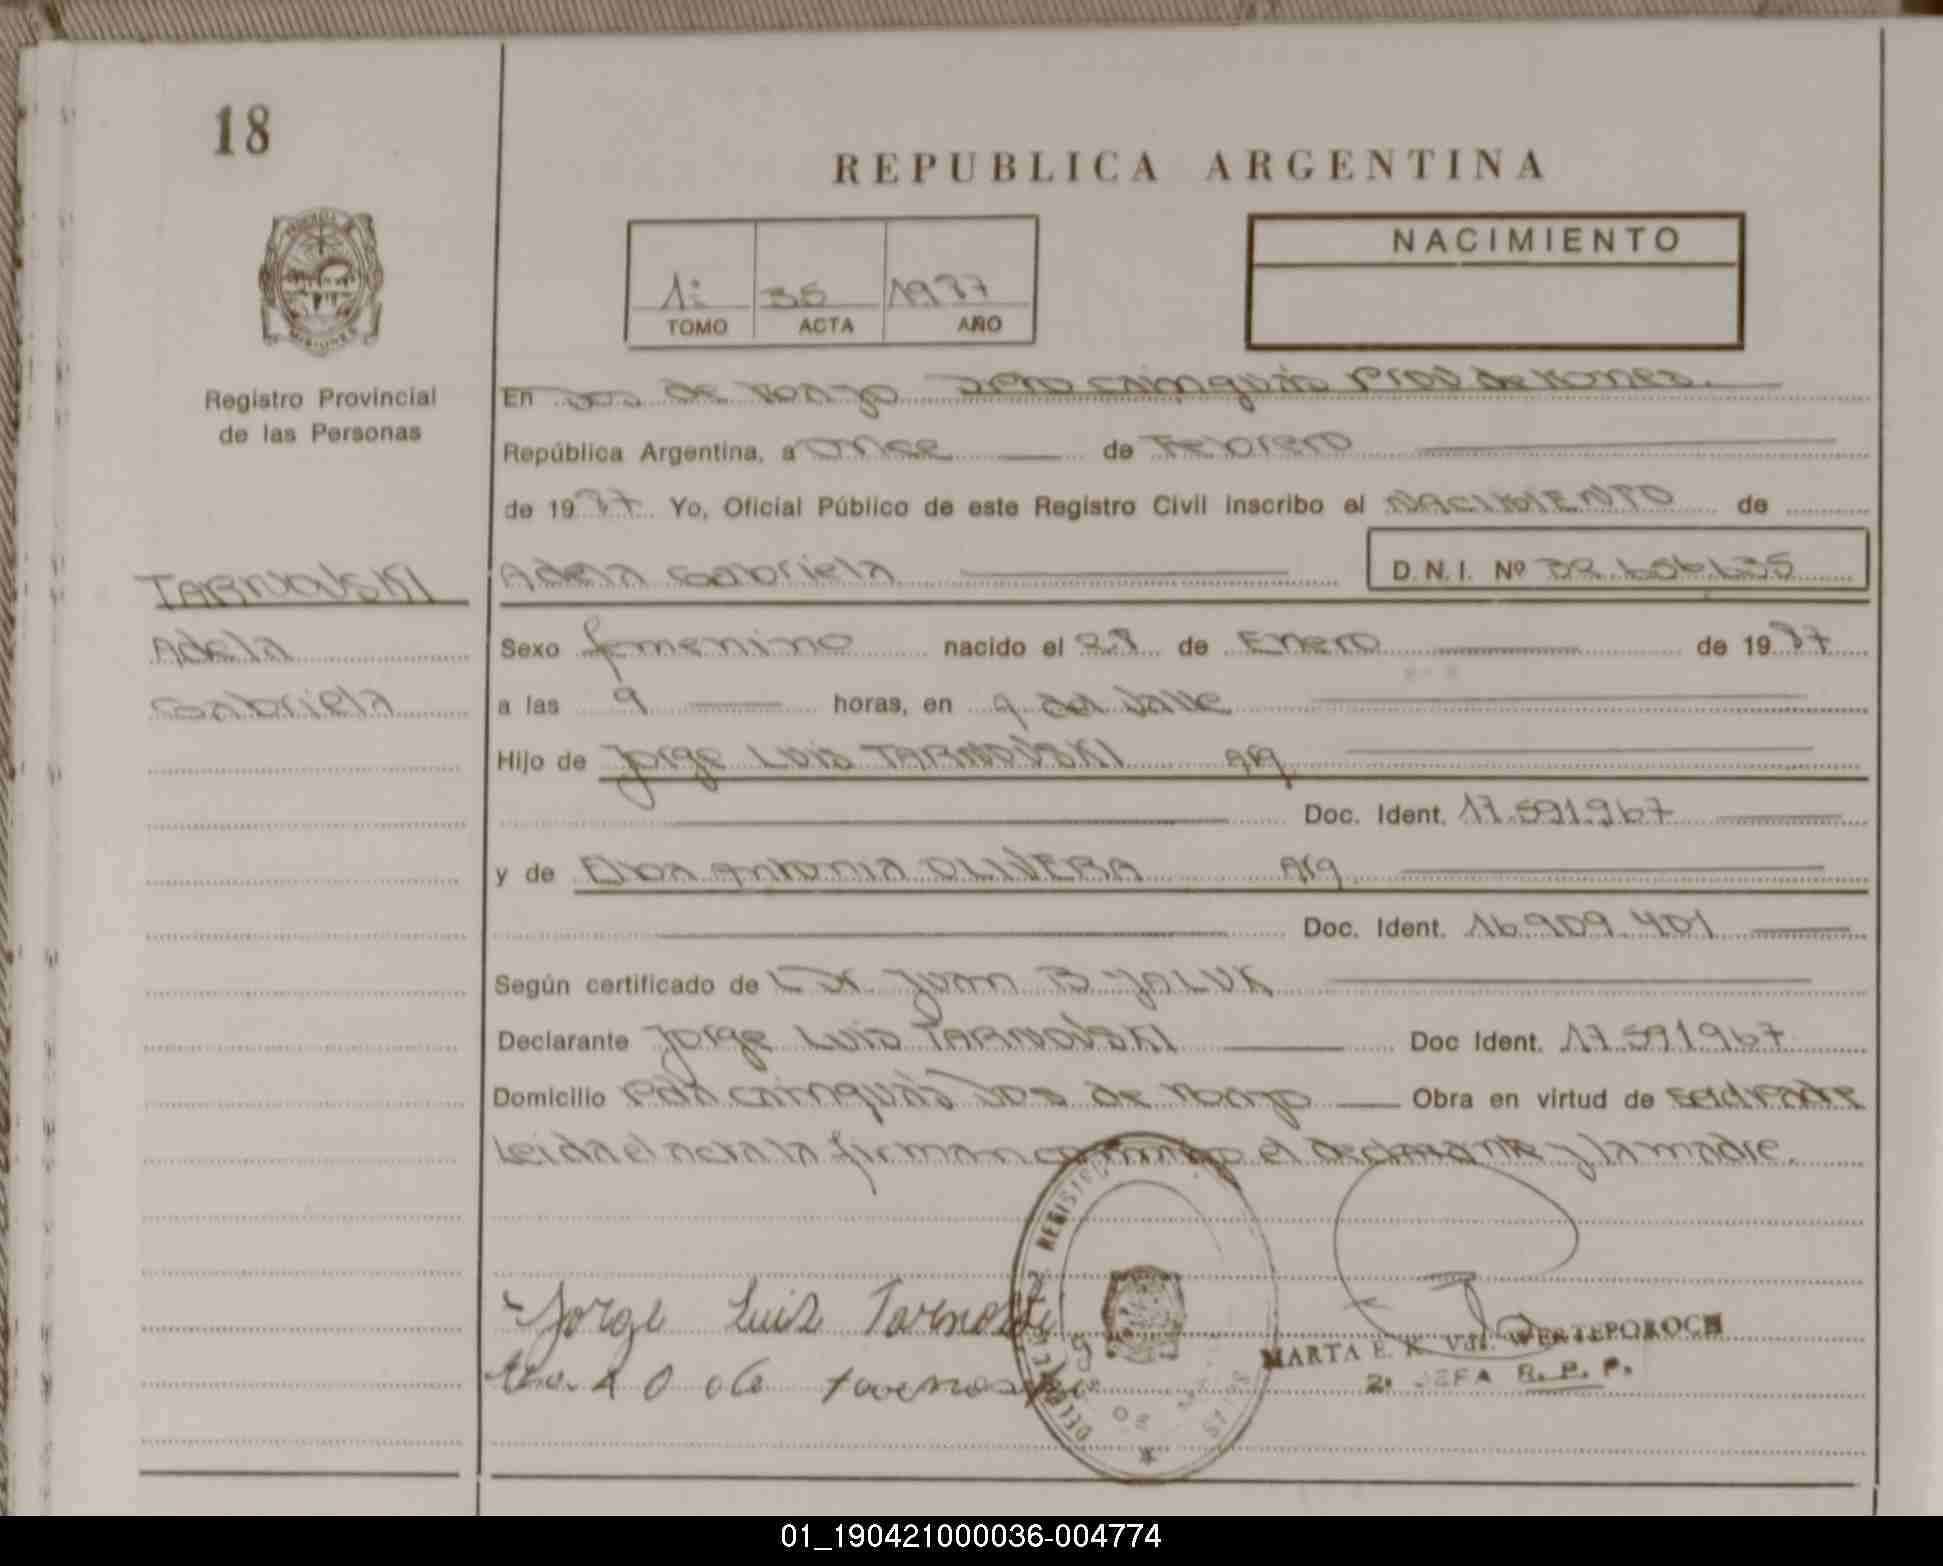 18
REPUBLICA ARGENTINA
NACIMIENTO
1º 35 1987
TOMO ACTA AÑO
MISIONES
Registro Provincial
de las Personas
En Dos de Mayo Dpto Cainguás Prov de Mones.
República Argentina, a once de Febrero
de 1987 Yo, Oficial Público de este Registro Civil inscribo el NACIMIENTO de
TARNOVSKI
Adela Gabriela D.N.I. Nº
Adela
Sexo femenino nacido el 28 de Enero de 1987
Gabriela
a las 9 horas, en 9 del Valle
Hijo de Jorge Luis TARNOVSKI arg
Doc. Ident. 17.591.967
y de Antonia OLIVERA Arg
Doc. Ident. 16.909.401
Según certificado de Juan B
Declarante Jorge Luis TARNOVSKI Doc Ident. 17.591967
Domicilio Cainguás Dos de Mayo Obra en virtud de
Leida el acta la firman conmigo el declarante y la madre.
REGISTRO
Jorge Luis
MARTA E. K. Vda.
JEFA R. P. P.
01_190421000036-004774